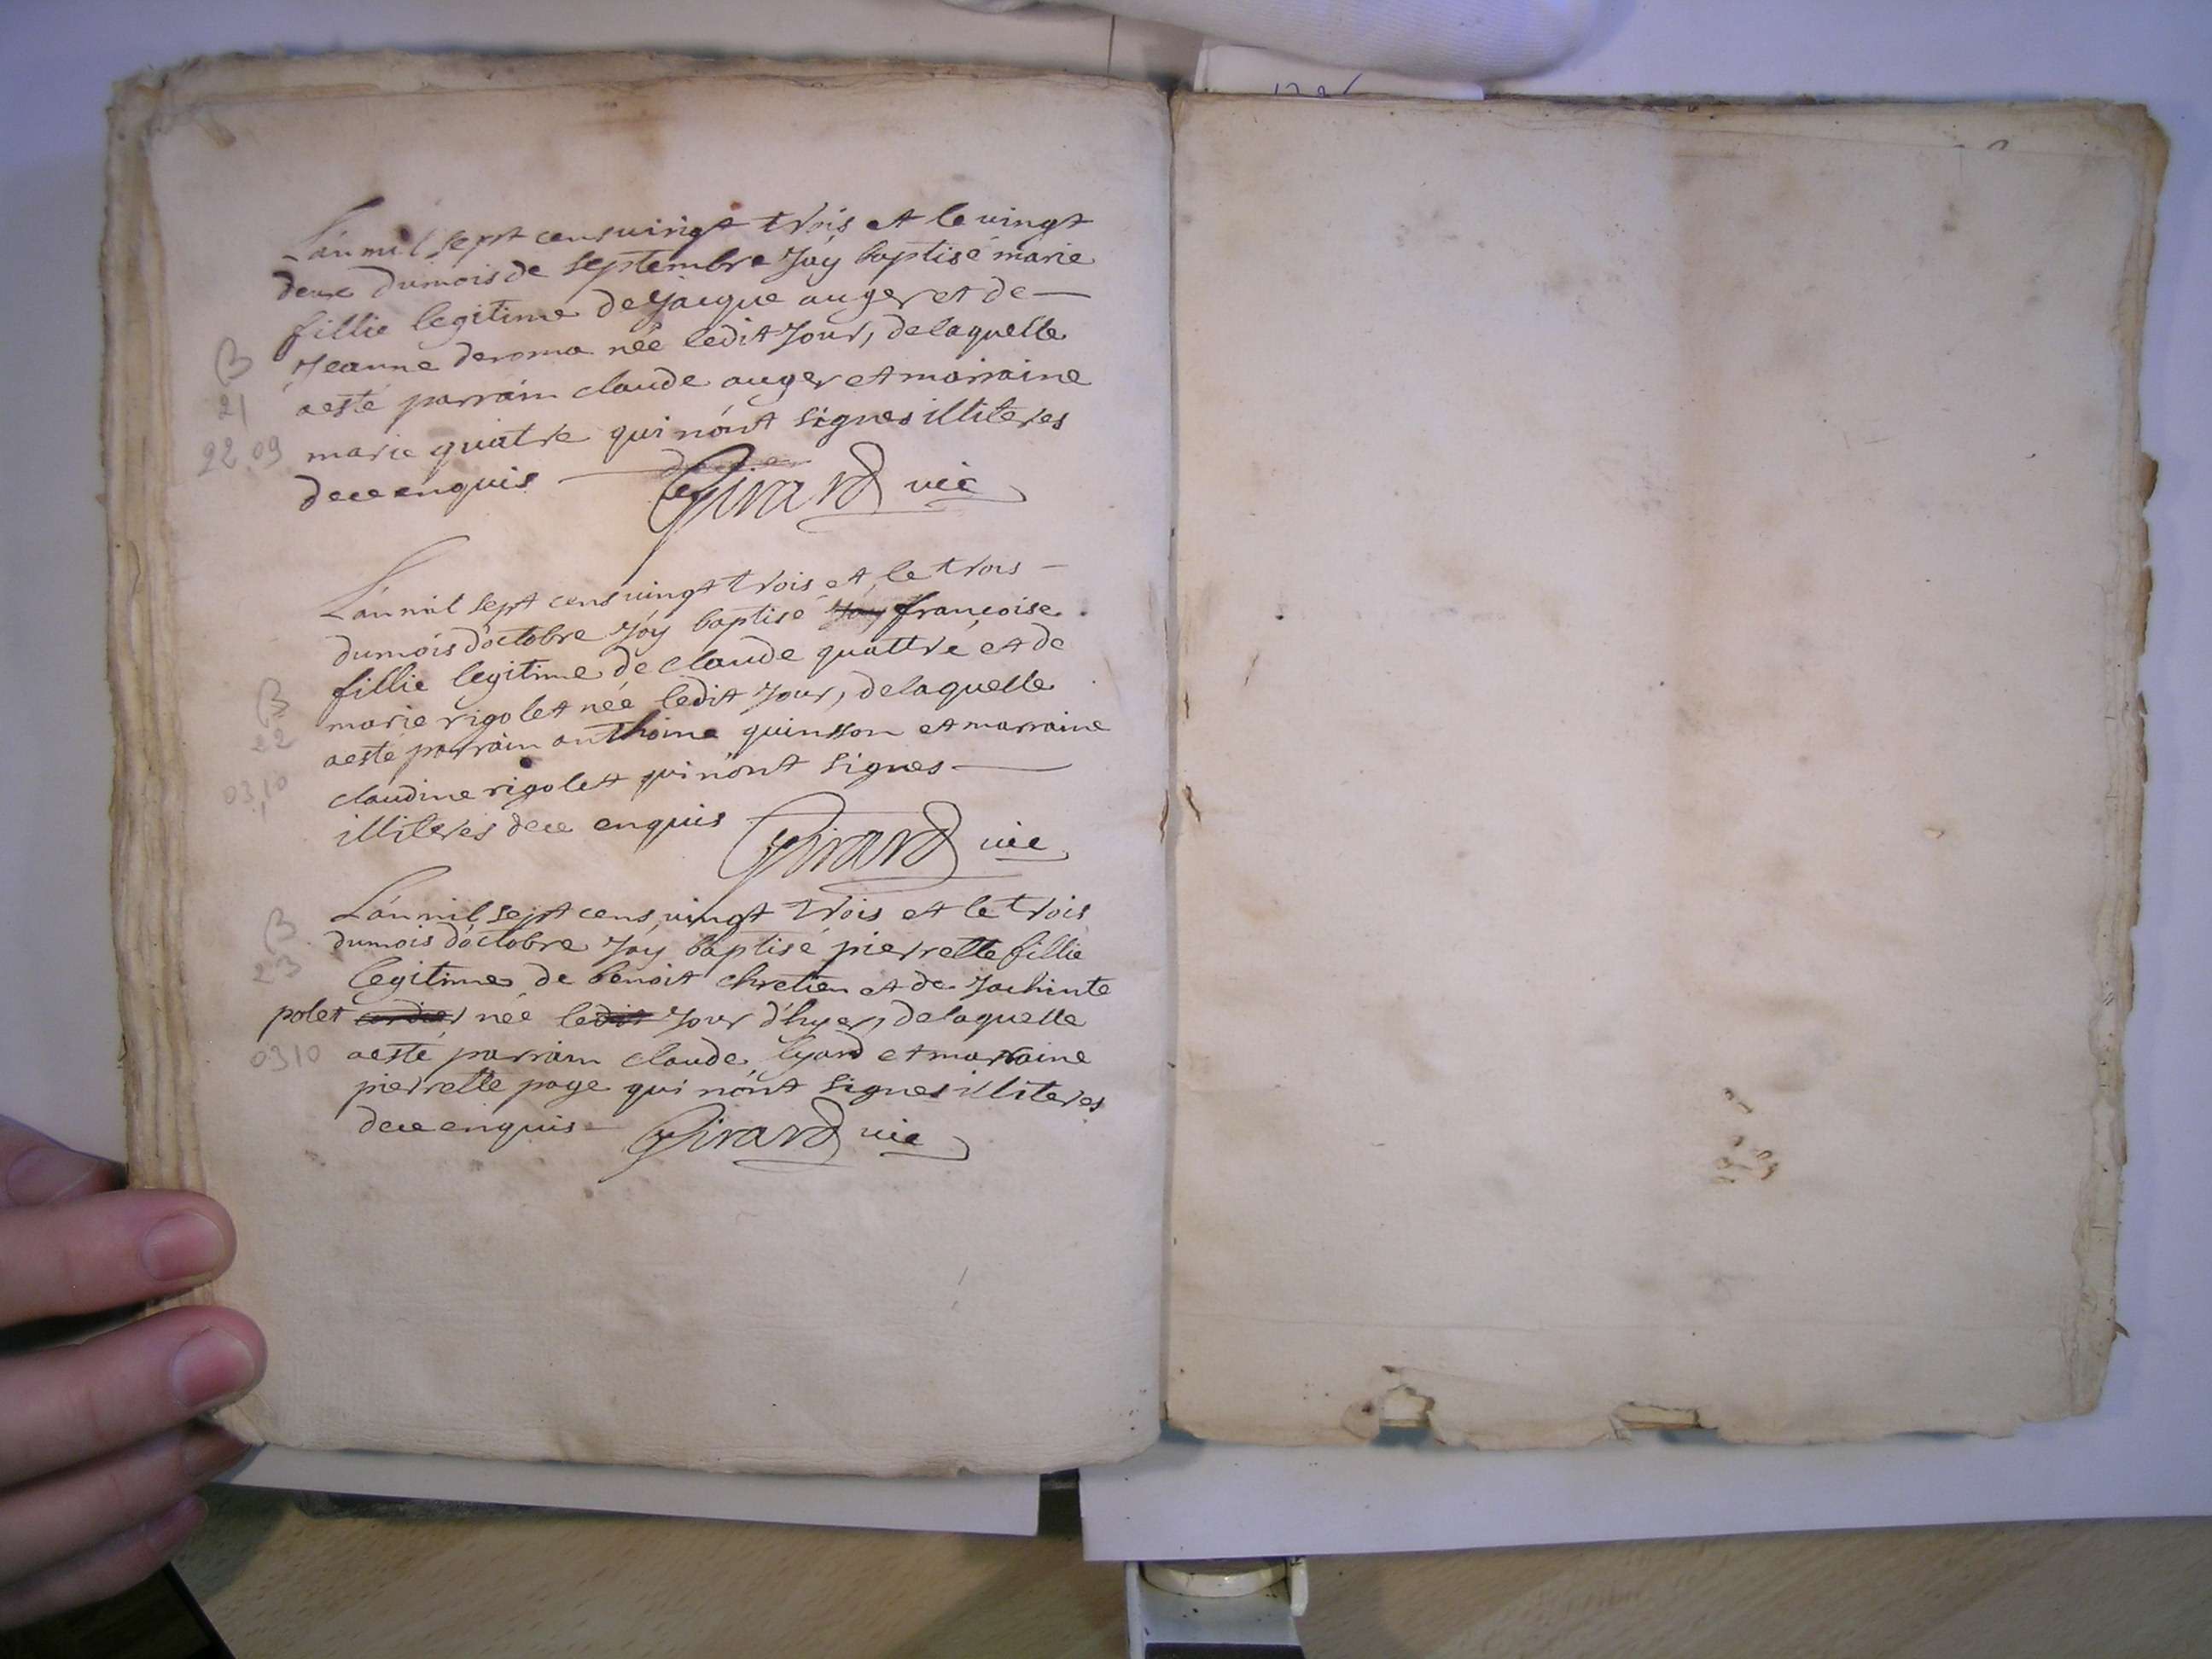 L'an mil sept cens vingt trois et le vingt
deux du mois de septembre j'ay baptisé marie
fillie legitime de jacque auger et de
jeanne deroma née ledit jour, de laquelle
a esté parrain claude auger et marraine
marie quatre qui n'ont signes illiteres
de ce enquis Girard vic
B
21
22.09
L'an mil sept cens vingt trois et le trois
du mois d'octobre j'ay baptisé françoise
fillie legitime de claude quattre et de
marie rigolet née ledit jour, de laquelle
a esté parrain anthoine quinson et marraine
claudine rigolet qui n'ont signes
illiteres de ce enquis Girard vic
B
22
03.10
L'an mil sept cens vingt trois et le trois
du mois d'octobre j'ay baptisé pierrette fillie
legitime de benoit chretien et de jachinte
polet née le jour d'hyer, de laquelle
a esté parrain claude lyard et marraine
pierrette page qui n'ont signes illiteres
de ce enquis Girard vic
B
23
0310